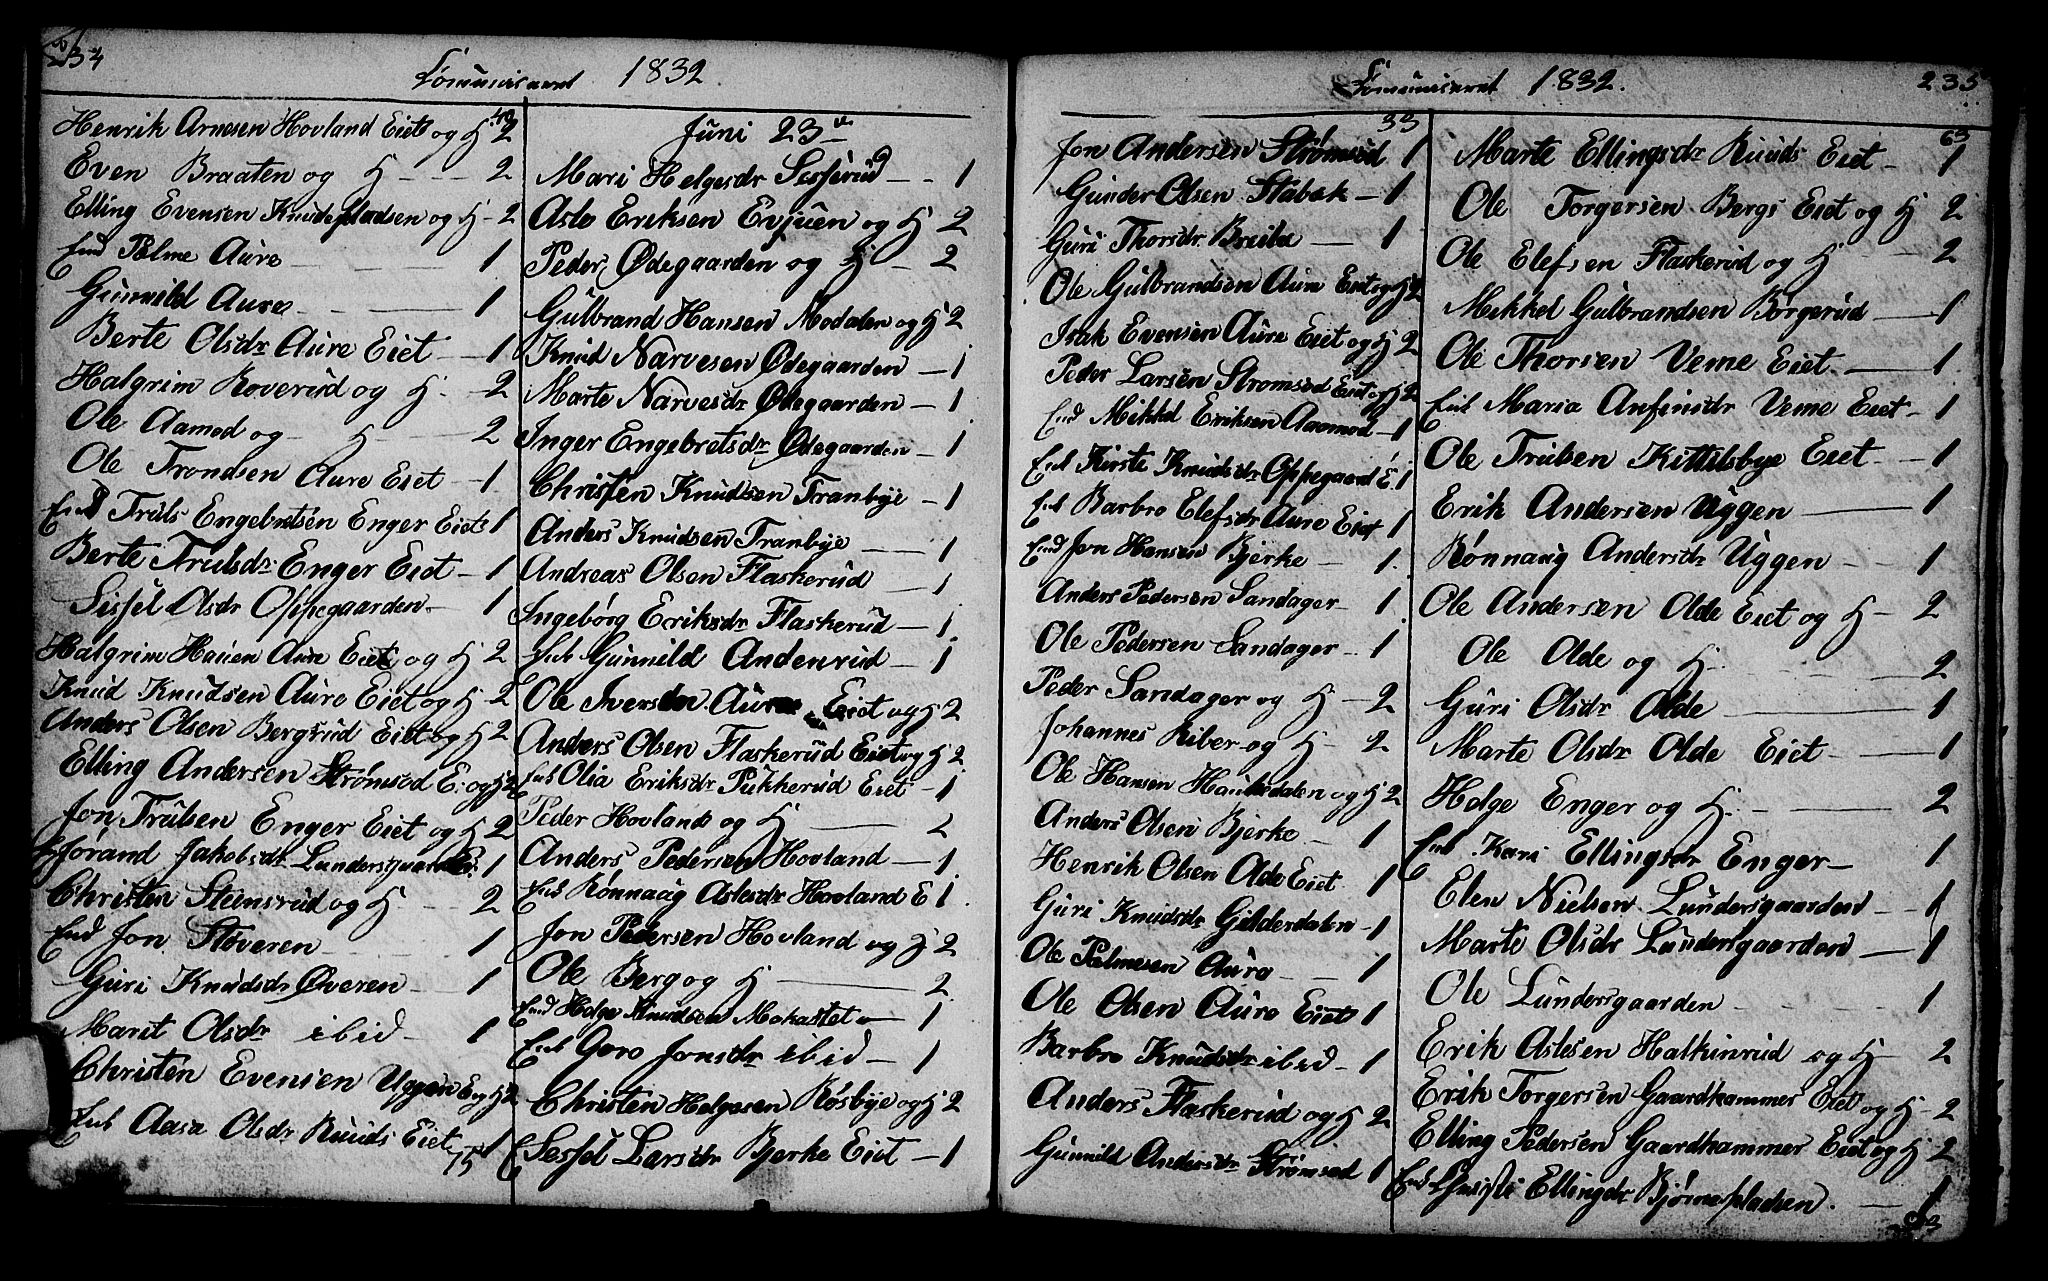 234
Communiceret 1832
42
Henrik Arnesen Hovland Eiet og H 2
Even Braaten og H 2
Elling Evensen Knudspladsen og H 2
End Palme Aure 1
Gunnild Aure 1
Berte Olsdr Aure Eiet 1
Halgrim Roverud og H. 2
Ole Aamod og H 2
Ole Trondsen Aure Eiet 1
End Truls Engebretsen Enger Eiet 1
Berte Trulsdr Enger Eiet 1
Sissel Olsdr Oppegaarden 1
Halgrim Hauen Aure Eiet og H 2
Knud Knudsen Aure Eiet og H 2
Anders Olsen Bergsrud Eiet og H 2
Elling Andersen Strømsod E. og H 2
Jon Trulsen Enger Eiet og H 2
Jørand Jakobsdr Lundersgaarden E. 1
Christen Steensrud og H 2
End Jon Støveren 1
Guri Knudsdr Øveren 1
Marit Olsdr ibid 1
Christen Evensen Uggen E og H 2
Enk Aasa Olsdr Ruuds Eiet 1
75
Juni 23
Mari Helgesdr Sesserud 1
Aslo Eriksen Evjuen og H 2
Peder Ødegaarden og H 2
Gulbrand Hansen Modalen og H 2
Knud Narvesen Ødegaarden 1
Marte Narvesdr Ødegaarden 1
Inger Engebretsdr Ødegaarden 1
Christen Knudsen Tranbye 1
Anders Knudsen Tranbye 1
Andreas Olsen Flaskerud 1
Ingeborg Eriksdr Flaskerud 1
Enk Gunnild Andenrud 1
Ole Iversen Aure Eiet og H 2
Anders Olsen Flaskerud Eiet og H 2
Enk Olia Eriksdr Pukkerud Eiet 1
Peder Hovland og H 2
Anders Pedersen Hovland 1
Enk Rønnaug Aslesdr Hovland E 1
Jon Pedersen Hovland og H 2
Ole Berg og H 2
End Helge Knudsen Mokastet 1
Enk Goro Jonsdr ibid 1
Christen Helgesen Røsbye og H 2
Sessel Larsdr Bjerke Eiet 1
Communiceret 1832.
235
33
Jon Andersen Strømsod 1
Gunder Olsen Stabek 1
Guri Thorsdr Breili 1
Ole Gulbrandsen Aure Eiet og H 2
Isak Evensen Aure Eiet og H 2
Peder Larsen Stromsod Eiet og H 2
End Mikkel Eriksen Aamod 1
Enk Kirste Knudsdr Oppegaard E 1
Enk Barbro Elefsdr Aure Eiet 1
End Jon Hansen Bjerke 1.
Anders Pedersen Sandager 1
Ole Pedersen Sandager 1
Peder Sandager og H 2
Johannes Riber og H 2
Ole Hansen Hauksdalen og H 2
Anders Olsen Bjerke 1
Henrik Olsen Olde Eiet 1
Guri Knudsdr Gulderdalen 1
Ole Palmesen Aure 1
Ole Olsen Aure Eiet 1
Barbro Knudsdr ibid 1
Anders Flaskerud og H 2
Gunnild Andersdr Strømsod 1
63
Marte Ellingsdr Ruuds Eiet 1
Ole Torgersen Bergs Eiet og H 2
Ole Elefsen Flaskerud og H 2
Mikkel Gulbrandsen Borgerud 1
Ole Thorsen Veme Eiet. 1
Enk Maria Anfinsdr Veme Eiet 1
Ole Trulsen Kittilsbye Eiet 1
Erik Andersen Uggen 1
Rønnaug Andersdr Uggen 1
Ole Andersen Olde Eiet og H 2
Ole Olde og H. 2
Guri Olsdr Olde 1
Marte Olsdr Olde Eiet 1
Helge Enger og H. 2
Enk Kari Ellingsdr Enger 1
Elen Nielsen Lundersgaarden 1
Marte Olsdr Lundersgaarden 1
Ole Lundersgaarden 1
Erik Aslesen Halkinrud og H 2
Erik Torgersen Gaardhammer Eiet og H 2
Elling Pedersen Gaardhammer Eiet og H 2
End Ellingdr Bjørnepladsen. 1